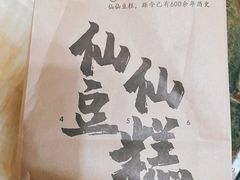 仙仙豆糕，距今已有600余年历史
仙豆
仙糕
4 5 6